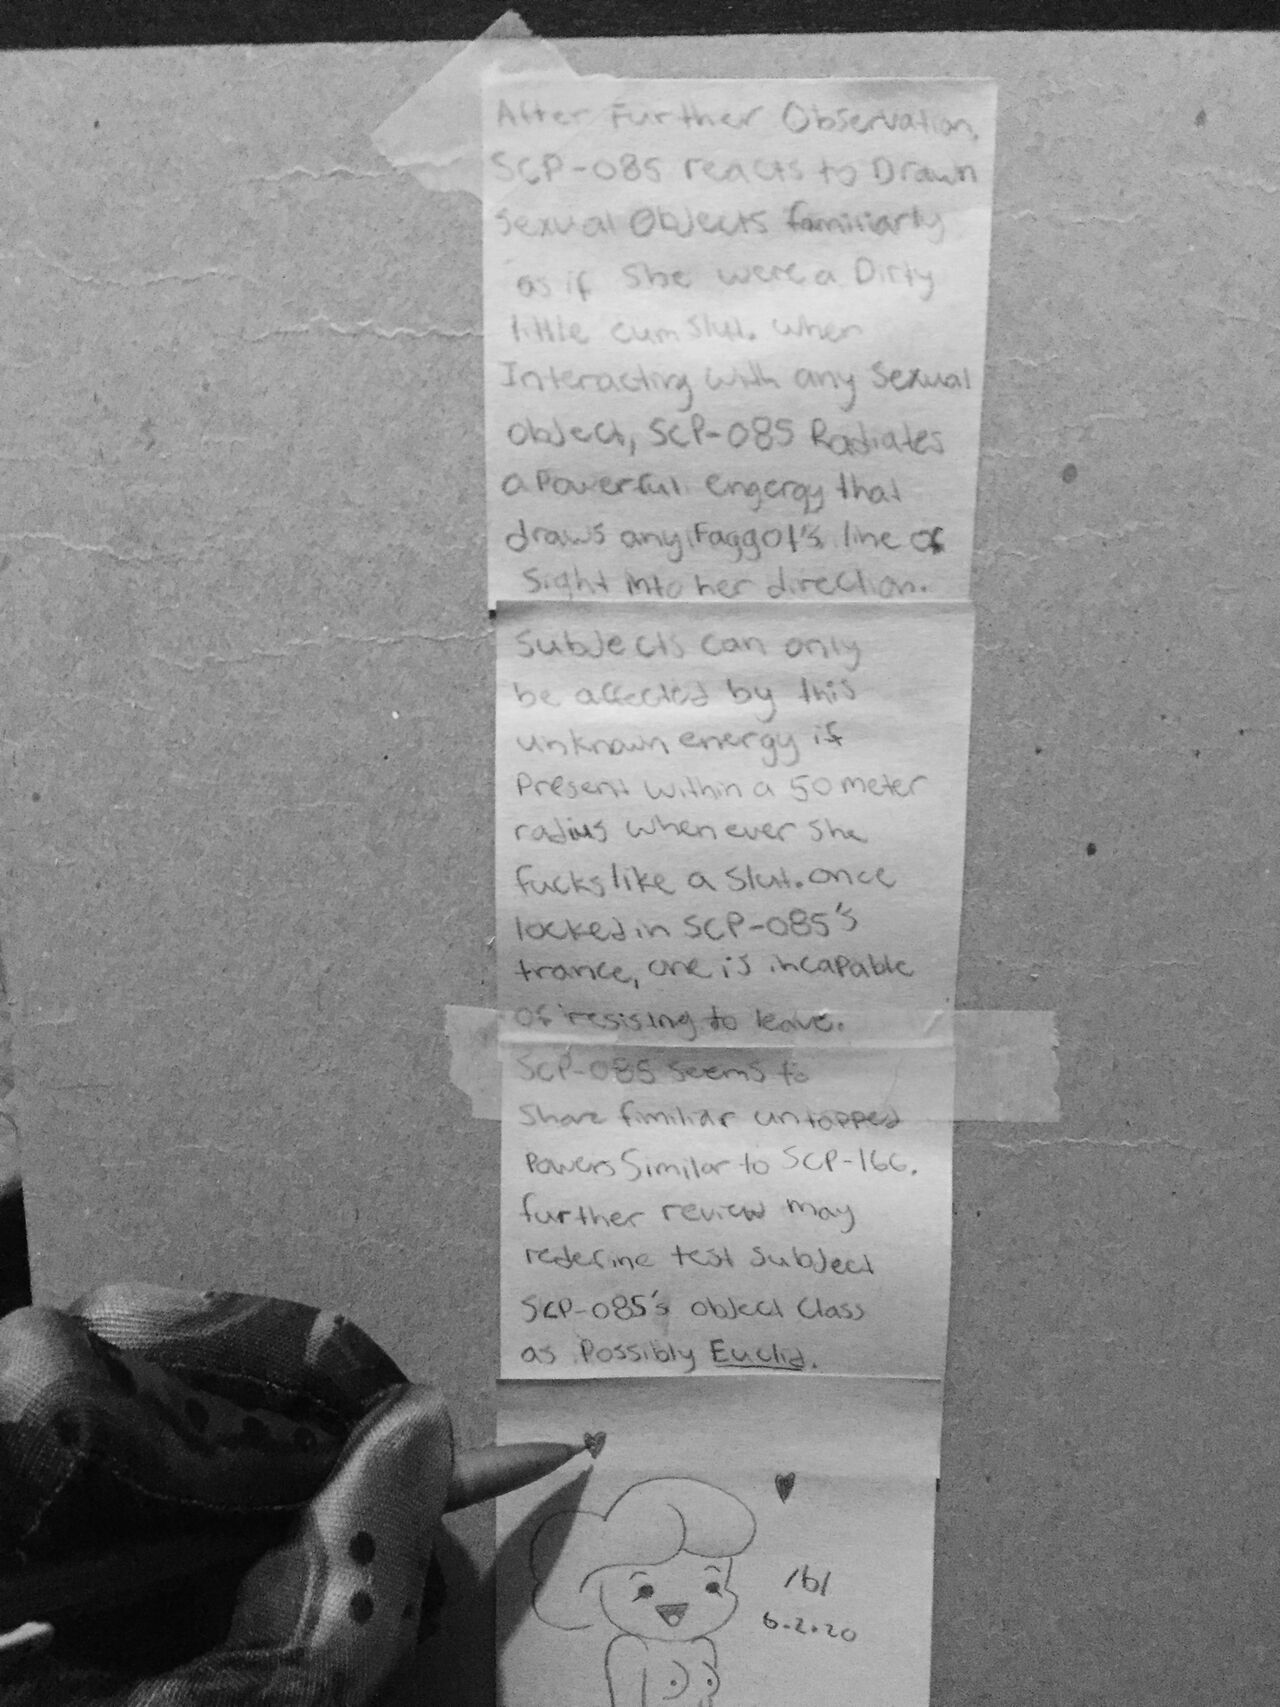 After Further Observation,
SCP-085 reacts to Drawn
Sexual Objects familiarly
as if she were a Dirty
little cum slut. when
Interacting with any Sexual
object, SCP-085 Radiates
a Powerful engergy that
draws any Faggot's line of
Sight into her direction.
Subjects can only
be affected by this
unknown energy if
Present within a 50 meter
radius when ever she
fucks like a slut. once
locked in SCP-085's
trance, one is incapable
of resising to leave.
SCP-085 seems to
Share fimiliar untapped
Powers Similar to SCP-166.
further review may
redefine test subject
SCP-085's object Class
as Possibly Euclid.
/b/
6-2-20